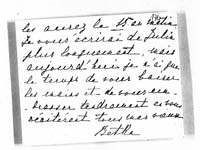 les aurez le 25 au matin
Je vous écrirai de Julia
plus longuement, mais
aujourd'hui je n'ai que
le temps de vous baiser
les mains et de vous em-
brasser tendrement en vous
réitérant tous mes vœux